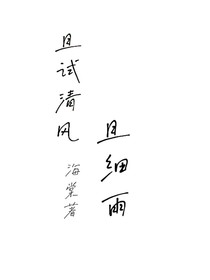 且试清风
且细雨
海棠著